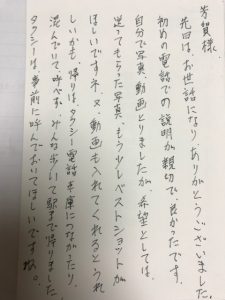 芳賀様
先日は、お世話になり、ありがとうございました。
初めの電話での説明が親切で良かったです。
自分で写真、動画とりましたが、希望としては、
送ってもらった写真、もう少しベストショットが
ほしいですネ。又、動画も入れてくれるとうれ
しいかも。帰りは、タクシー電話を車につながったり、
混んでいて呼べず、みんな歩いて駅まで帰りました。
タクシーは、事前に呼んでおいてほしいですね。